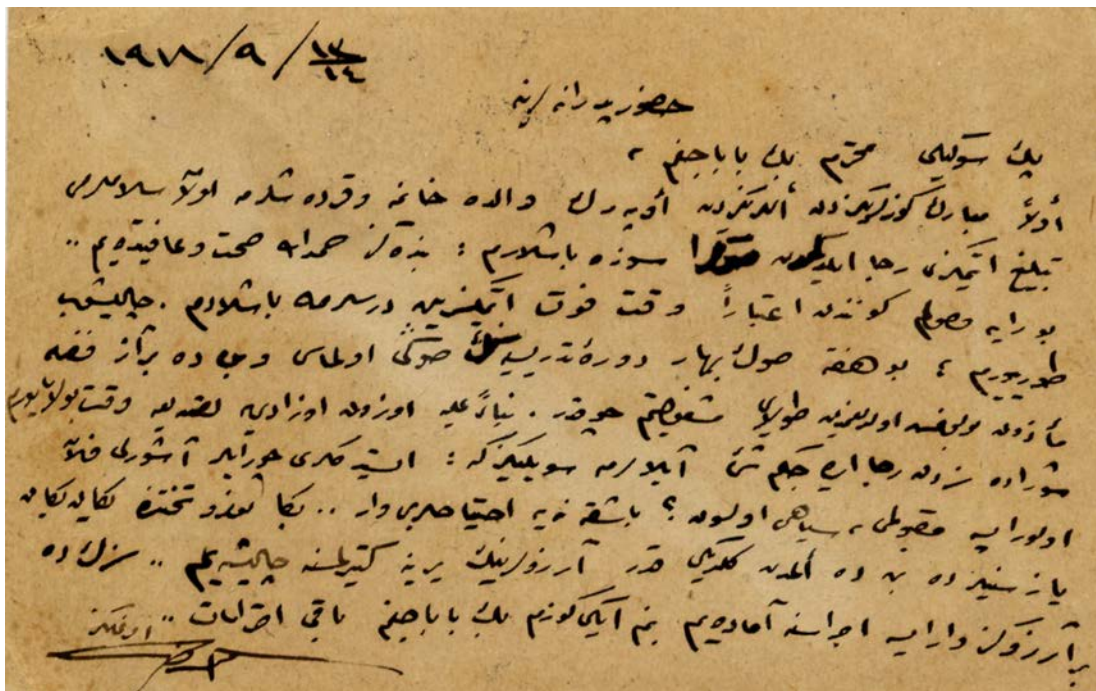 ١٩١٨/٩/١٣ ١٤
حضور پدرانه لرینه
پك سوكیلی محترم بك باباجغم ،
أولاً مبارك كوزلریكزدن أللریكزدن أوپه رك والده خانمه وقرده شلرمه اولاً سلاملرمی
تبلیغ ایتمكزی رجا ایلدكدن صوكرا سوزه باشلارم : بنده كز حمداً صحت وعافیتده یم ..
بورایه وصولم كونندن اعتباراً وقت فوت ایتمكسزین درسلرمه باشلادم . چالیشوب
طوریورم ؛ بو هفته صوك بهار دورۀ تدریسیه سنك صوكی اولماسی و ده براز فضله
مأذون اولدیغمزدن طولایی مشغولیتم چوقدر . بناءً علیه اوزون اوزادی یه وقت بولامایورم
شوراده سزدن رجا ایده جكم شئ آبلالرمه سویلیكز كه : ایستدكلری آشورلی
اولورایسه مقبولمی ، سیاهمی اولسون ؟ باشقه نه یه احتیاجلری وار .. بكا
یازسینلرده بن ده ألمدن كلدیكی قدر آرزولرینك یرینه كتیرلمسنه چالیشه یم .. سزك ده
بر آرزوكز وار ایسه اجراسنه آماده یم بنم ایكی كوزم بك باباجغم باقی احترامات ..
اوغلكز